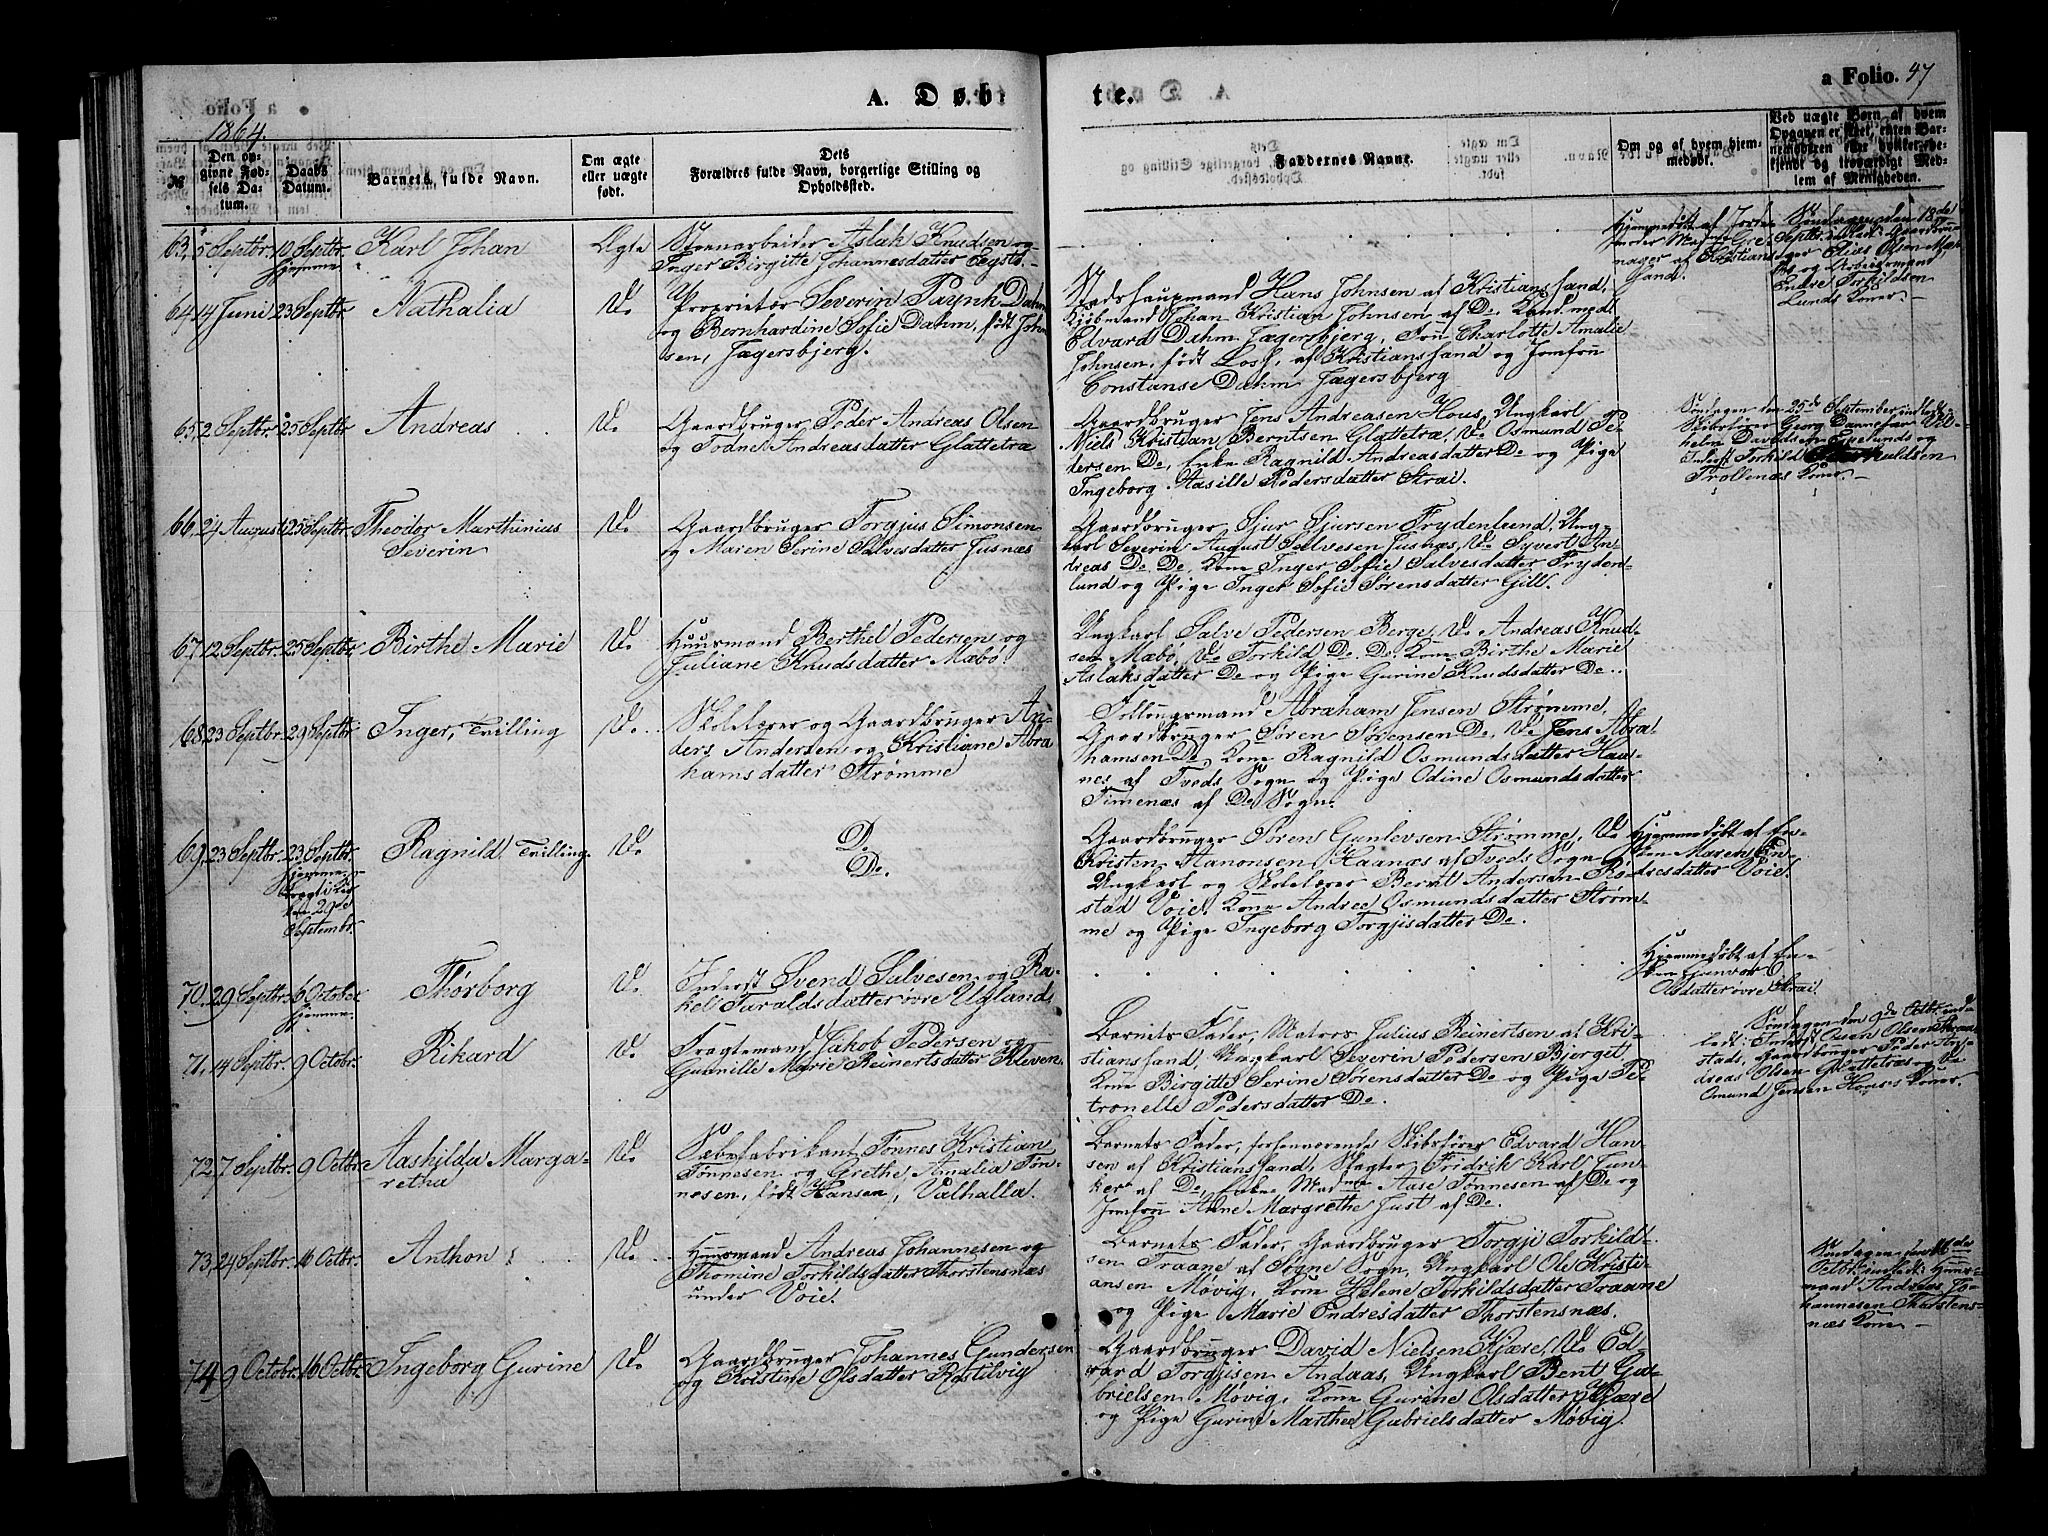 A. Døb-
te.
a Folio. 47
1864.
№
Den op-
givne Fød-
sels Da-
tum.
Daabs
Datum.
Barnets fulde Navn.
Om ægte
eller uægte
født.
Dets
Forældres fulde Navn, borgerlige Stilling og
Opholdssted.
Faddernes Navne.
Om og af hvem hjem-
medøbt.
Ved uægte Børn af hvem
Opgaven er skeet, enten Bar-
nemoderen eller hvilket be-
kjendt og troværdigt Med-
lem af Menigheden.
63, 5 Septbr. 10 Septbr. Karl Johan Ægte Steenarbeider Aslak Knudsen og
hjemme. Inger Birgitte Johannesdatter
Hjemmedøbt af Jorde-
moder
Kristians-
sand.
Søndagen den 18de
Septbr.
Elias Olsen
og Arbeidsmand
Endre Torkildsen
Lunds Koner.
64 14 Juni 23 Septbr. Nathalia Do Proprietør Severin Paynk Dahm
og Bernhardine Sofie Dahm, født John-
sen, Jægersbjerg.
Stadshaupmand Hans Johnsen af Kristianssand,
Kjøbmand Johan Kristian Johnsen af Do. Kand. med.
Edvard Dahm Jægersbjerg, Fru Charlotte Amalie
Johnsen, født , af Kristianssand og Jomfru
Constanse Dahm Jægersbjerg
65, 2 Septbr. 25 Septbr. Andreas Do Gaardbruger Peder Andreas Olsen
og Todne Andreasdatter Glattetræ
Gaardbruger Jens Andreasen Hous, Ungkarl
Niels Kristian Berntsen Glattetræ, Do Osmund Pe-
dersen Do, Enke Ragnild Andreasdatter Do og Pige
Ingeborg Aasille Pedersdatter Strai.
Søndagen den 25de September indledt:
Skibsfører Georg Dannefær Vil-
helm Davidsen Egelunds og
Inderst Torkild
Trollenæs Koner.
66, 24 August 25 Septbr. Theodor Marthinius Do Gaardbruger Torgjus Simonsen
Severin og Maren Serine Salvesdatter Jusnæs
Gaardbruger Sjur Sjursen Frydenlund, Ung-
karl Severin August Salvesen Jusnæs, Do Syvert An-
dreas Do Do, Kone Inger Sofie Salvesdatter Fryden-
lund og Pige Inger Sofie Sørensdatter Gill.
67, 12 Septbr. 25 Septbr. Birthe Marie Do Huusmand Berthel Pedersen og
Juliane Knudsdatter Mæbø
Ungkarl Salve Pedersen Berge, Do Andreas Knud-
sen Mæbø, Do Torkild Do Do, Kone Birthe Marie
Aslaksdatter Do og Pige Gurine Knudsdatter Do.
68, 23 Septbr. 29 Septbr. Inger, Tvilling Do Skolelærer og Gaardbruger An-
ders Andersen og Kristiane Abra-
hamsdatter Strømme
Føllingsmand Abraham Jensen Strømme,
Gaardbruger Søren Sørensen Do, Do Jens Abra-
hamsen Do, Kone Ragnild Osmundsdatter Haa-
nes af Tveds Sogn og Pige Odine Osmundsdatter
Timenæs af Do Sogn.
69, 23 Septbr. 23 Septbr. Ragnild, Tvilling Do Do
hjemme. Do.
bragt i Kir-
ken 29de
Septembr.
Gaardbruger Søren Gunlevsen Strømme, Do
Kristen Hanonsen Haanæs af Tveds Sogn
Ungkarl og Skolelærer Bernt Andersen Rød-
stad Voie, Kone Andree Osmundsdatter Strøm-
me og Pige Ingeborg Torgjisdatter Do.
Hjemmedøbt af En-
ken Maren En-
dresdatter Voie.
70, 29 Septbr. 6 October Thorborg Do Inderst Svend Salvesen og Ra-
hjemme. kel Taraldsdatter øvre Ugland
Hjemmedøbt af En-
ken Gunvor
Olsdatter øvre Strai.
71, 14 Septbr. 9 Octbr. Rikard Do Fragtemand Jakob Pedersen og
Gunnille Marie Reinertsdatter Kleven.
Barnets Fader, Matros Julius Reinertsen af Kri-
stianssand, Ungkarl Severin Pedersen Bjerget,
Kone Birgitte Serine Sørensdatter Do og Pige Pe-
tronelle Pedersdatter Do.
Søndagen den 9de Octbr. ind-
ledt: Inderst Olsen
stads, Gaardbruger Peder An-
dreas Olsen Glattetræs og Do
Osmund Jensen Hous's Koner.
72, 7 Septbr. 9 Octbr. Aashilda Marga- Do Sæbefabrikant Tønnes Kristian
retha Tønnesen og Grethe Amalia Tøn-
nesen, født Hansen, Valhalla.
Barnets Fader, forhenværende Skibsfører Edvard Han-
sen af Kristianssand, Slagter Fridrik Karl Jun-
ker af Do, Enke Madme Aase Tønnesen af Do og
Jomfru Anne Margrethe Just af Do.
73, 24 Septbr. 16 Octbr. Anthon Do Huusmand Andreas Johannesen og
Thomine Torkildsdatter Thorstensnæs
under Voie.
Barnets Fader, Gaardbruger Torgji Torkild-
sen Traane af Søgne Sogn, Ungkarl Ole Kristi-
ansen Møvig, Kone Helene Torkildsdatter Traane
og Pige Marie Endresdatter Thorstensnæs.
Søndagen den 16de
Octbr. indledt: Huus-
mand Andreas Jo-
hannesen Thorstens-
næs Kone
74 9 Octbr. 16 Octbr. Ingeborg Gurine Do Gaardbruger Johannes Gundersen
og Kristine Olsdatter Rostilvig
Gaardbruger David Nielsen Kjære, Do Ed-
vard Torgjisen Andaas, Ungkarl Bent Ga-
brielsen Møvig, Kone Gurine Olsdatter Kjære
og Pige Gurine Marthea Gabrielsdatter Møvig.